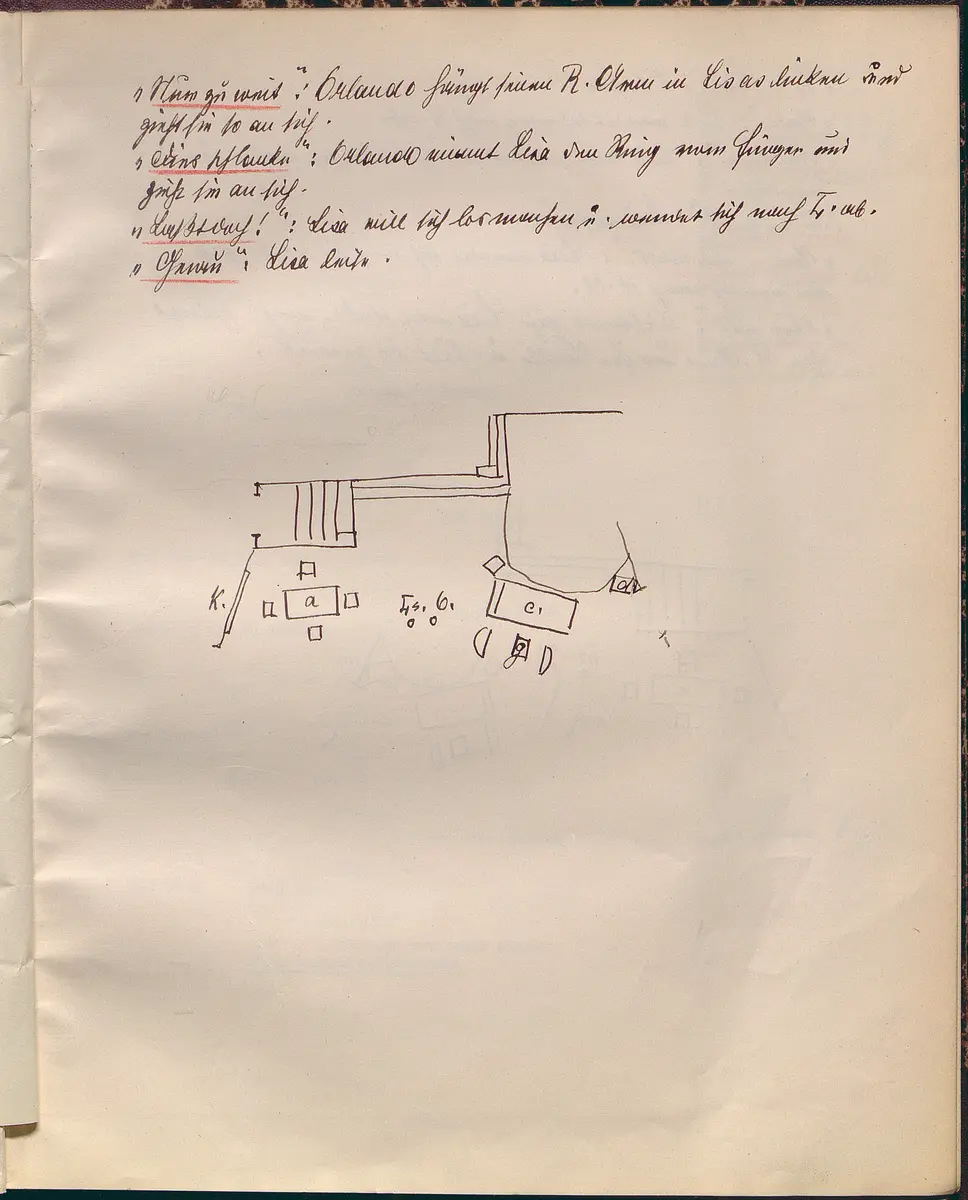 „Nur zu weit": Orlando hängt seinen R. Arm in Lisas linken und
zieht sie so an sich.
": Orlando nimmt Lisa den Ring vom Finger und
zieht sie an sich.
„Laßt doch!": Lisa will sich losmachen u. wendet sich nach L. ab.
„Genau": Lisa leise.
K.
a
Ls. O.
c.
d.
g